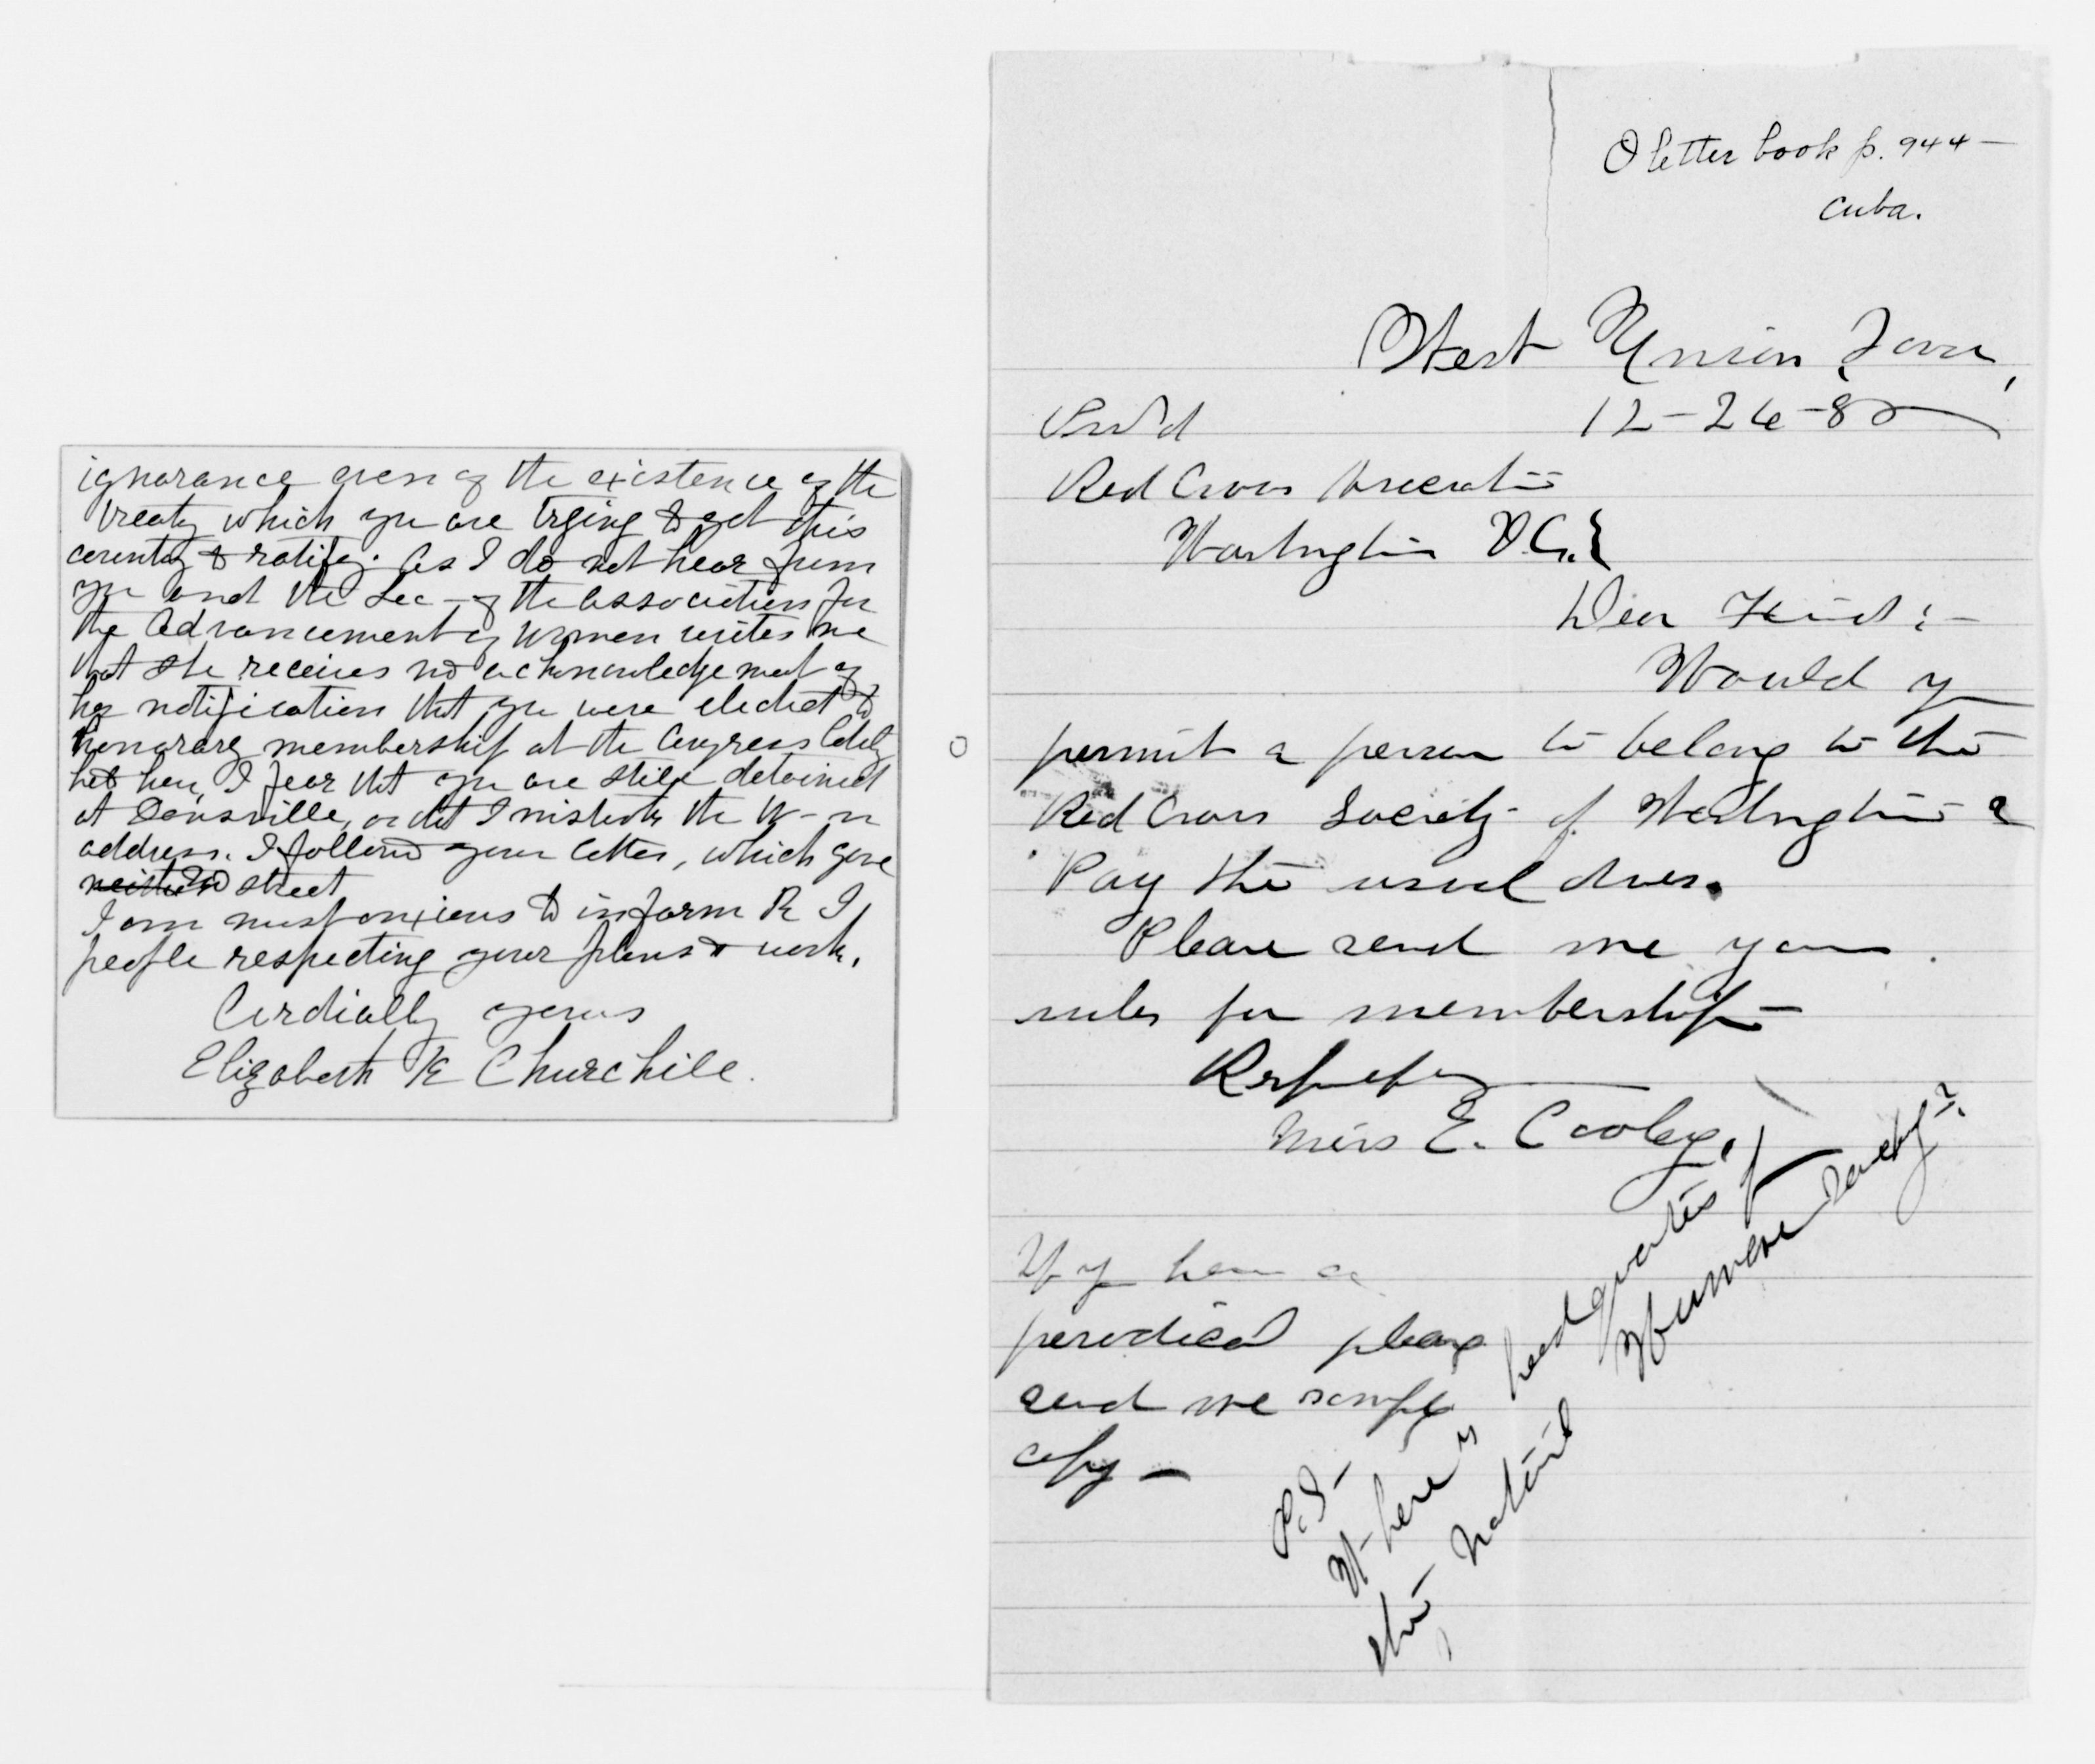 ignorance even of the existence of the
treaty which you are trying to get this
country to ratify. As I do not hear from
you and the Sec-y of the Association for
the Advancement of Women writes me
that she receives no acknowledgement of
her notification that you were elected to
honorary membership at the Congress lately
held here, I fear that you are still detained
at Dansville, or that I mistook the W-n
address. I follow your letter, which gave
no street
I am most anxious to inform R I
people respecting your plans & work.
Cordially yours
Elizabeth K Churchill.
O letter book p. 944 –
Cuba.
West Union Iowa,
12-26-82
Pres'd
Red Cross Association
Washington D.C.
Dear Friend :-
Would you
permit a person to belong to the
Red Cross Society of Washington &
Pay the usual dues.
Please send me your
rules for membership –
Respectfully
Miss E. Cooley.
If you have a
periodical please
send me sample
copy –
P.S –
Where is headquarters of
the National Humane Society?